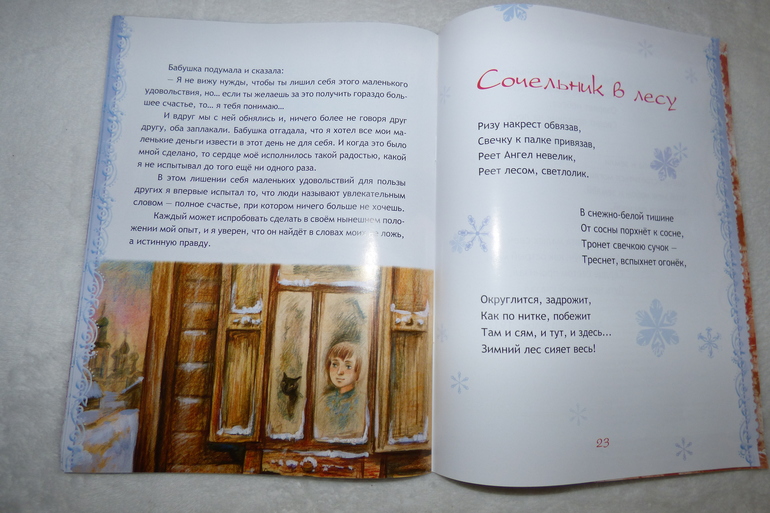 Бабушка подумала и сказала:
– Я не вижу нужды, чтобы ты лишил себя этого маленького
удовольствия, но... если ты желаешь за это получить гораздо боль-
шее счастье, то... я тебя понимаю...
И вдруг мы с ней обнялись и, ничего более не говоря друг
другу, оба заплакали. Бабушка отгадала, что я хотел все мои ма-
ленькие деньги извести в этот день не для себя. И когда это было
мной сделано, то сердце моё исполнилось такой радостью, какой
я не испытывал до того ещё ни одного раза.
В этом лишении себя маленьких удовольствий для пользы
других я впервые испытал то, что люди называют увлекательным
словом – полное счастье, при котором ничего больше не хочешь.
Каждый может испробовать сделать в своём нынешнем поло-
жении мой опыт, и я уверен, что он найдёт в словах не ложь,
а истинную правду.
Сочельник в лесу
Ризу накрест обвязав,
Свечку к палке привязав,
Реет Ангел невелик,
Реет лесом, светлолик.
В снежно-белой тишине
От сосны порхнёт к сосне,
Тронет свечкою сучок –
Треснет, вспыхнет огонёк,
Округлится, задрожит,
Как по нитке, побежит
Там и сям, и тут, и здесь...
Зимний лес сияет весь!
23